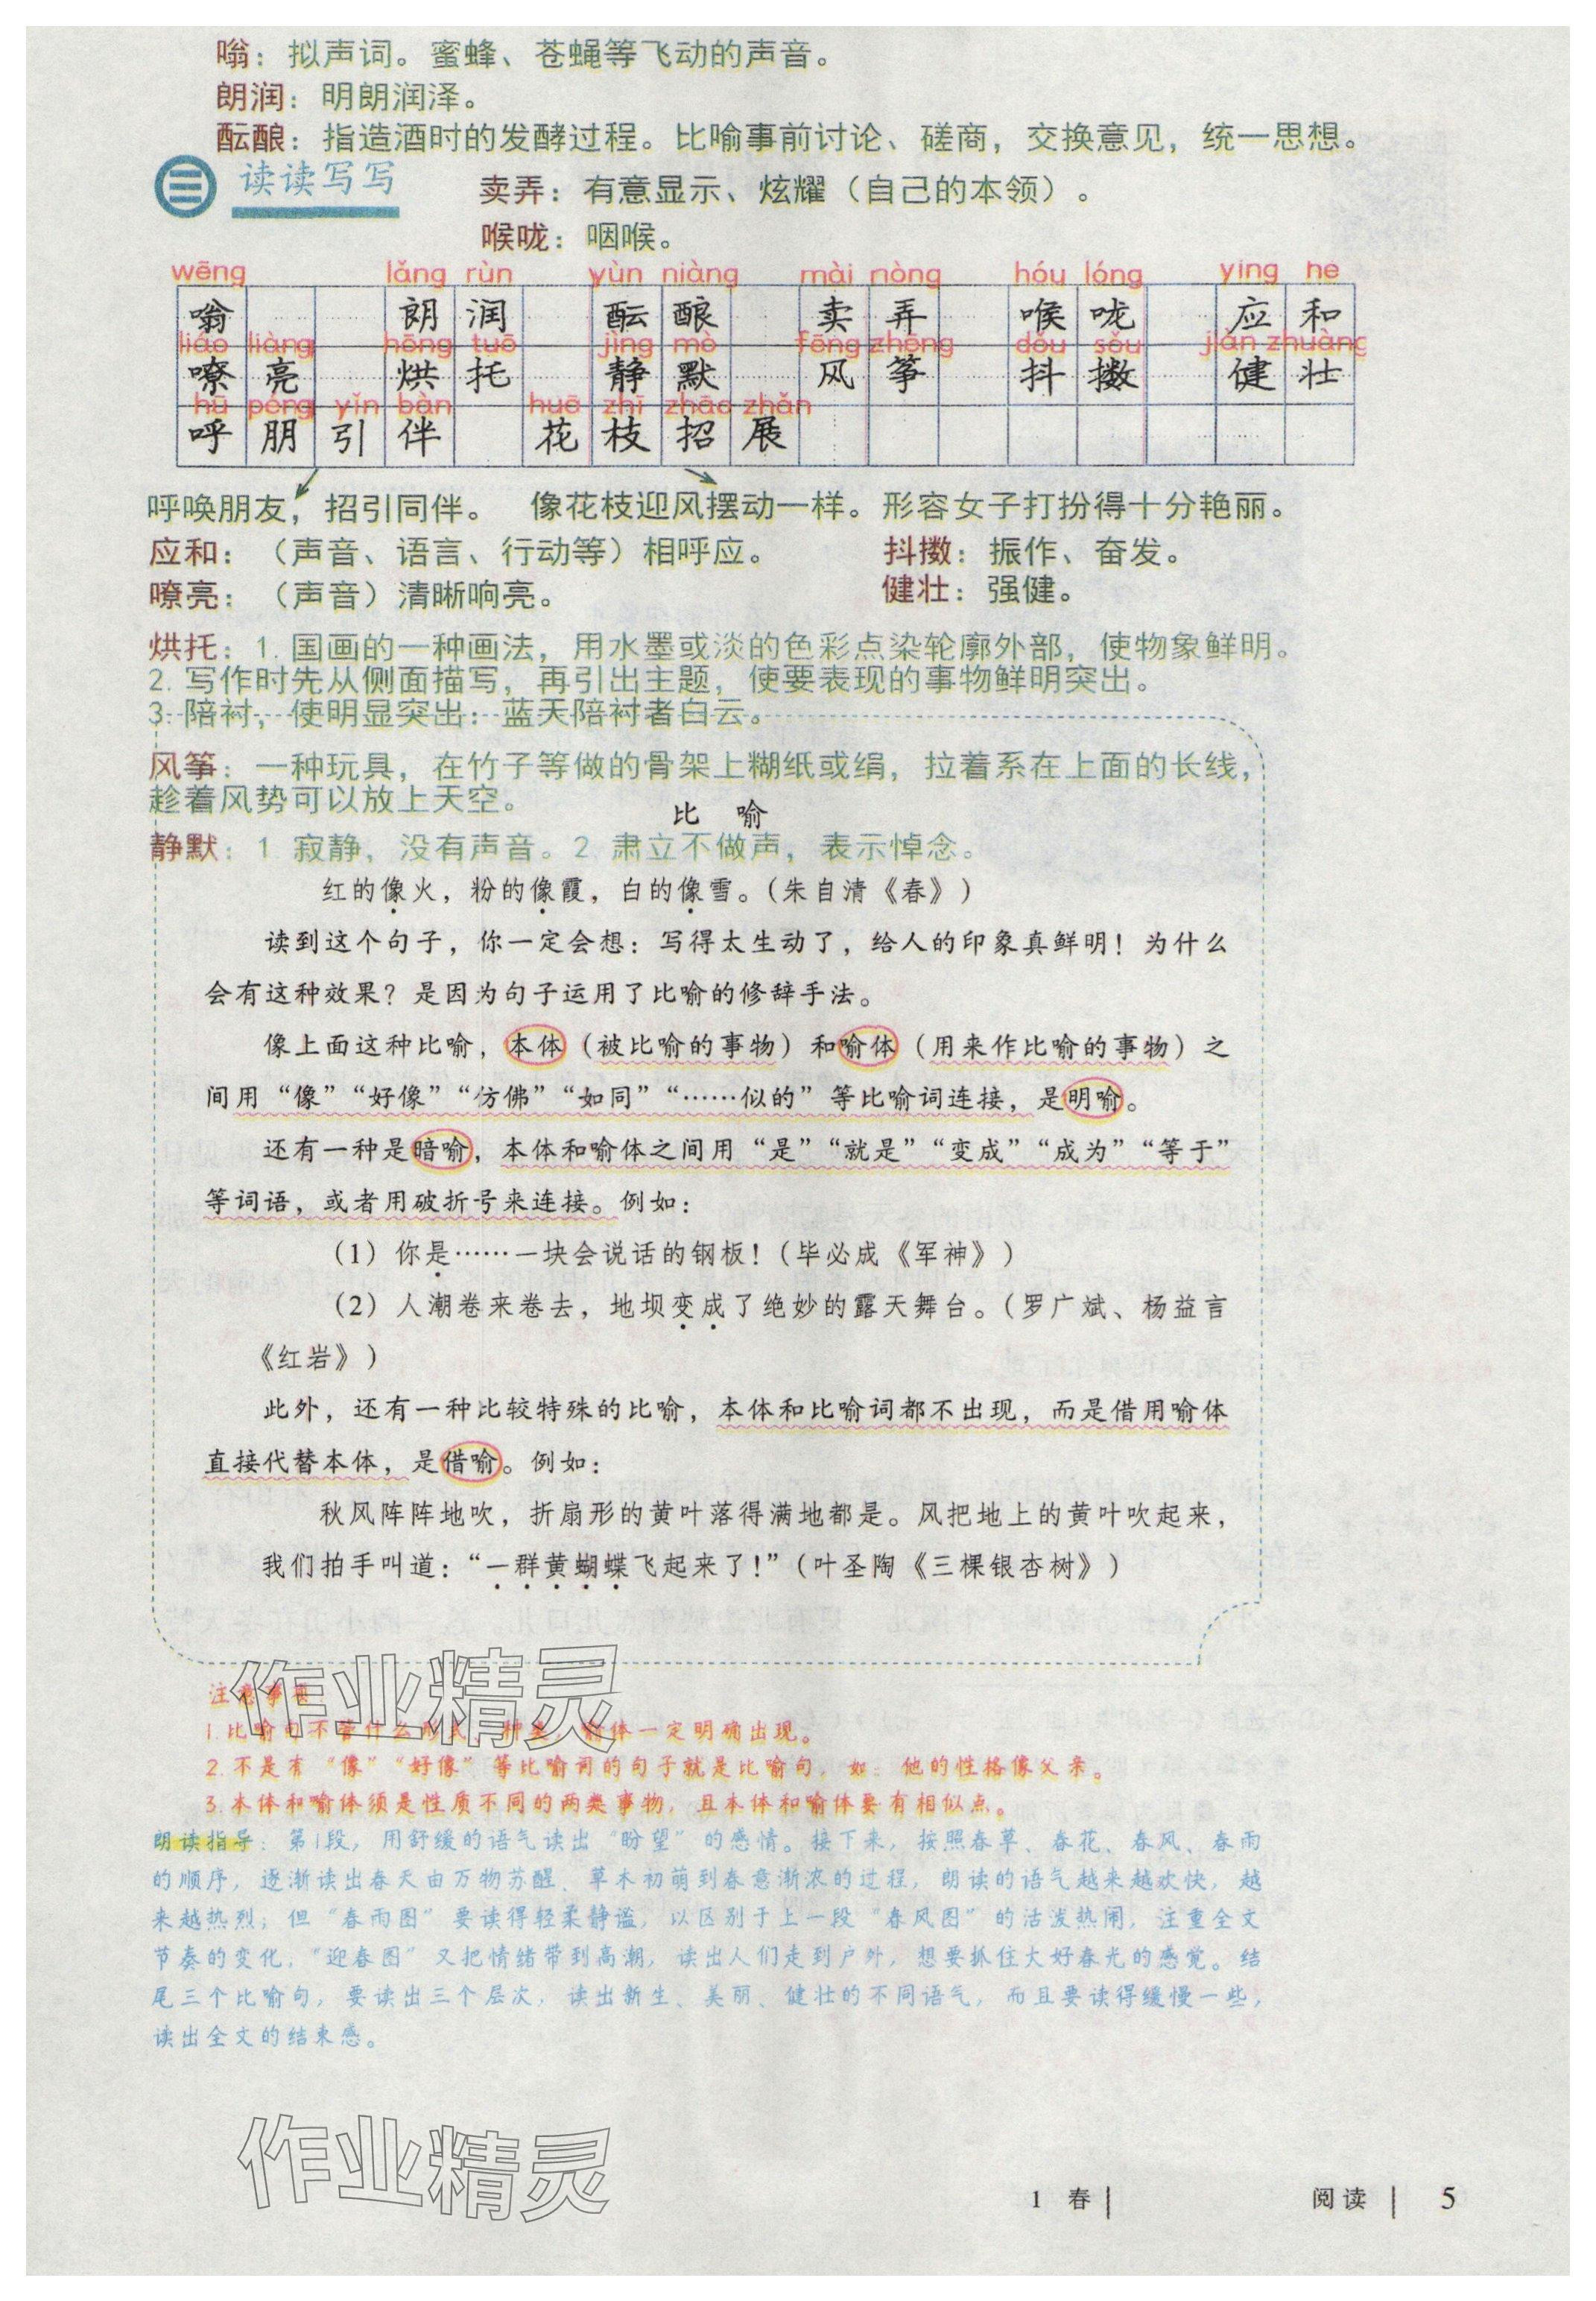 嗡：拟声词。蜜蜂、苍蝇等飞动的声音。
朗润：明朗润泽。
酝酿：指造酒时的发酵过程。比喻事前讨论、磋商，交换意见，统一思想。
三 读读写写
卖弄：有意显示、炫耀（自己的本领）。
喉咙：咽喉。
wēng lǎng rùn yùn niàng mài nòng hóu lóng yìng hè
嗡 朗润 酝酿 卖弄 喉咙 应和
liáo liàng hōng tuō jìng mò fēng zheng dǒu sǒu jiàn zhuàng
嘹亮 烘托 静默 风筝 抖擞 健壮
hū péng yǐn bàn huā zhī zhāo zhǎn
呼朋引伴 花枝招展
呼唤朋友，招引同伴。 像花枝迎风摆动一样。形容女子打扮得十分艳丽。
应和：（声音、语言、行动等）相呼应。 抖擞：振作、奋发。
嘹亮：（声音）清晰响亮。 健壮：强健。
烘托：1. 国画的一种画法，用水墨或淡的色彩点染轮廓外部，使物象鲜明。
2. 写作时先从侧面描写，再引出主题，使要表现的事物鲜明突出。
3. 陪衬，使明显突出：蓝天陪衬着白云。
风筝：一种玩具，在竹子等做的骨架上糊纸或绢，拉着系在上面的长线，
趁着风势可以放上天空。
比 喻
静默：1 寂静，没有声音。2 肃立不做声，表示悼念。
红的像火，粉的像霞，白的像雪。（朱自清《春》）
读到这个句子，你一定会想：写得太生动了，给人的印象真鲜明！为什么
会有这种效果？是因为句子运用了比喻的修辞手法。
像上面这种比喻，本体（被比喻的事物）和喻体（用来作比喻的事物）之
间用“像”“好像”“仿佛”“如同”“……似的”等比喻词连接，是明喻。
还有一种是暗喻，本体和喻体之间用“是”“就是”“变成”“成为”“等于”
等词语，或者用破折号来连接。例如：
（1）你是……一块会说话的钢板！（毕必成《军神》）
（2）人潮卷来卷去，地坝变成了绝妙的露天舞台。（罗广斌、杨益言
《红岩》）
此外，还有一种比较特殊的比喻，本体和比喻词都不出现，而是借用喻体
直接代替本体，是借喻。例如：
秋风阵阵地吹，折扇形的黄叶落得满地都是。风把地上的黄叶吹起来，
我们拍手叫道：“一群黄蝴蝶飞起来了！”（叶圣陶《三棵银杏树》）
作业精灵
注意事项
1.比喻句不管什么形式、种类，喻体一定明确出现。
2.不是有“像”“好像”等比喻词的句子就是比喻句，如：他的性格像父亲。
3.本体和喻体须是性质不同的两类事物，且本体和喻体要有相似点。
朗读指导：第1段，用舒缓的语气读出“盼望”的感情。接下来，按照春草、春花、春风、春雨
的顺序，逐渐读出春天由万物苏醒、草木初萌到春意渐浓的过程，朗读的语气越来越欢快，越
来越热烈；但“春雨图”要读得轻柔静谧，以区别于上一段“春风图”的活泼热闹，注重全文
节奏的变化；“迎春图”又把情绪带到高潮，读出人们走到户外，想要抓住大好春光的感觉。结
尾三个比喻句，要读出三个层次，读出新生、美丽、健壮的不同语气，而且要读得缓慢一些，
读出全文的结束感。
作业精灵
1 春 阅读 5